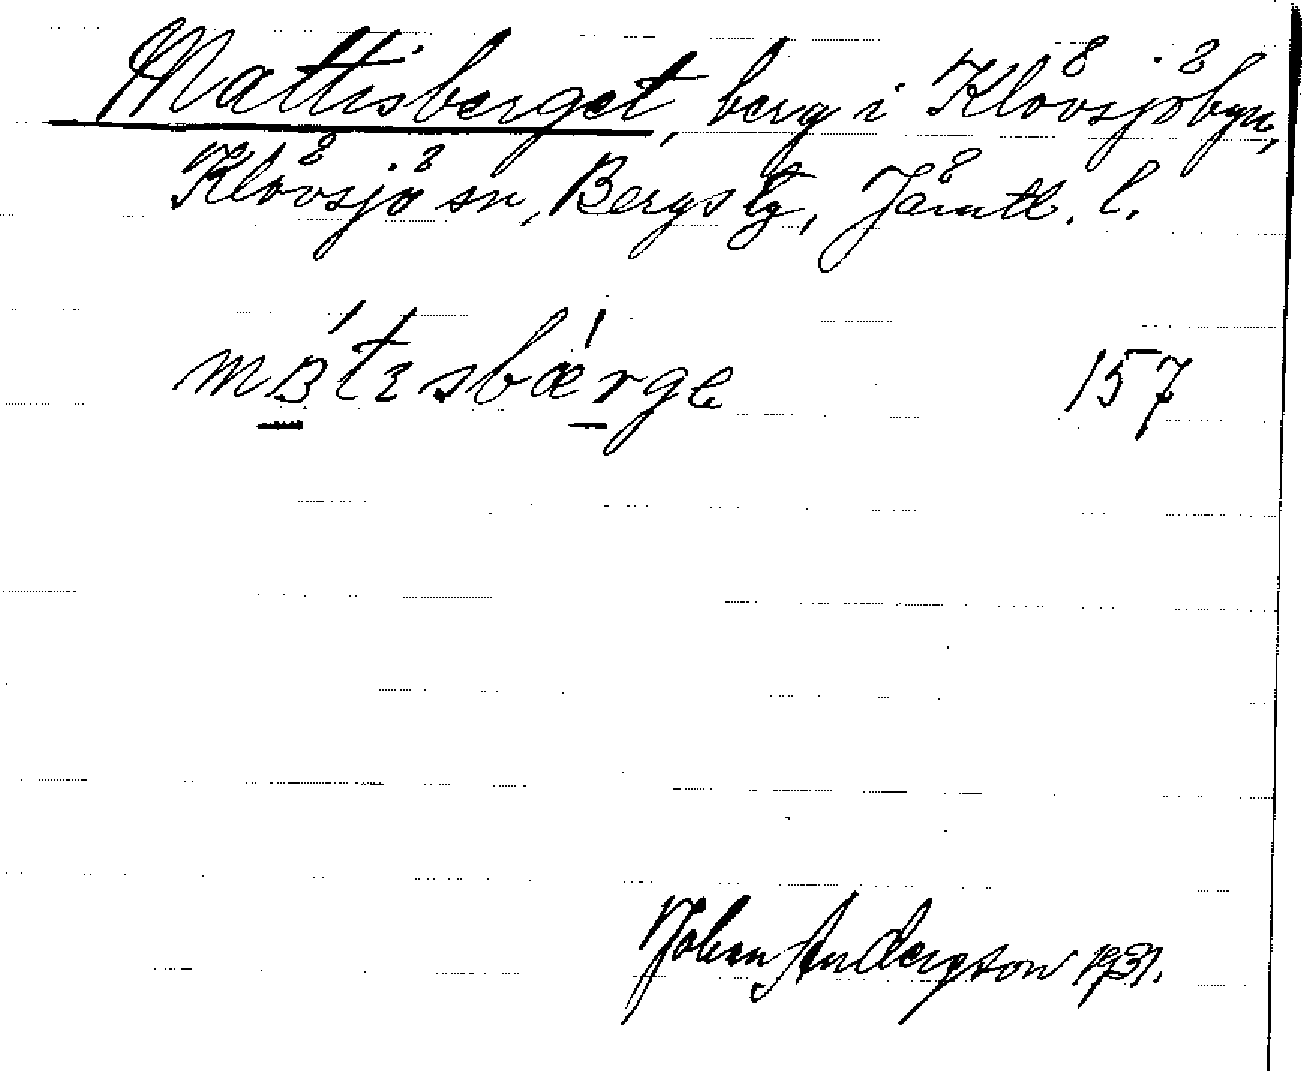 Mattisberget, berg i Klövsjöbyn,
Klövsjö sn, Bergs tg, Jämtl. l.
157
Johan Anderzson 1931.